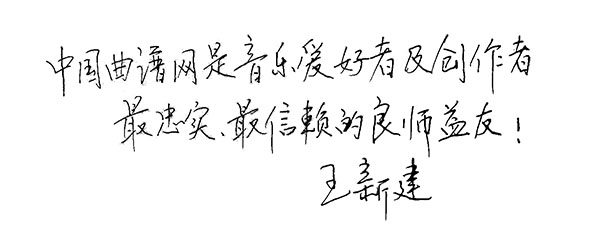 中国曲谱网是音乐爱好者及创作者
最忠实、最信赖的良师益友！
王新建